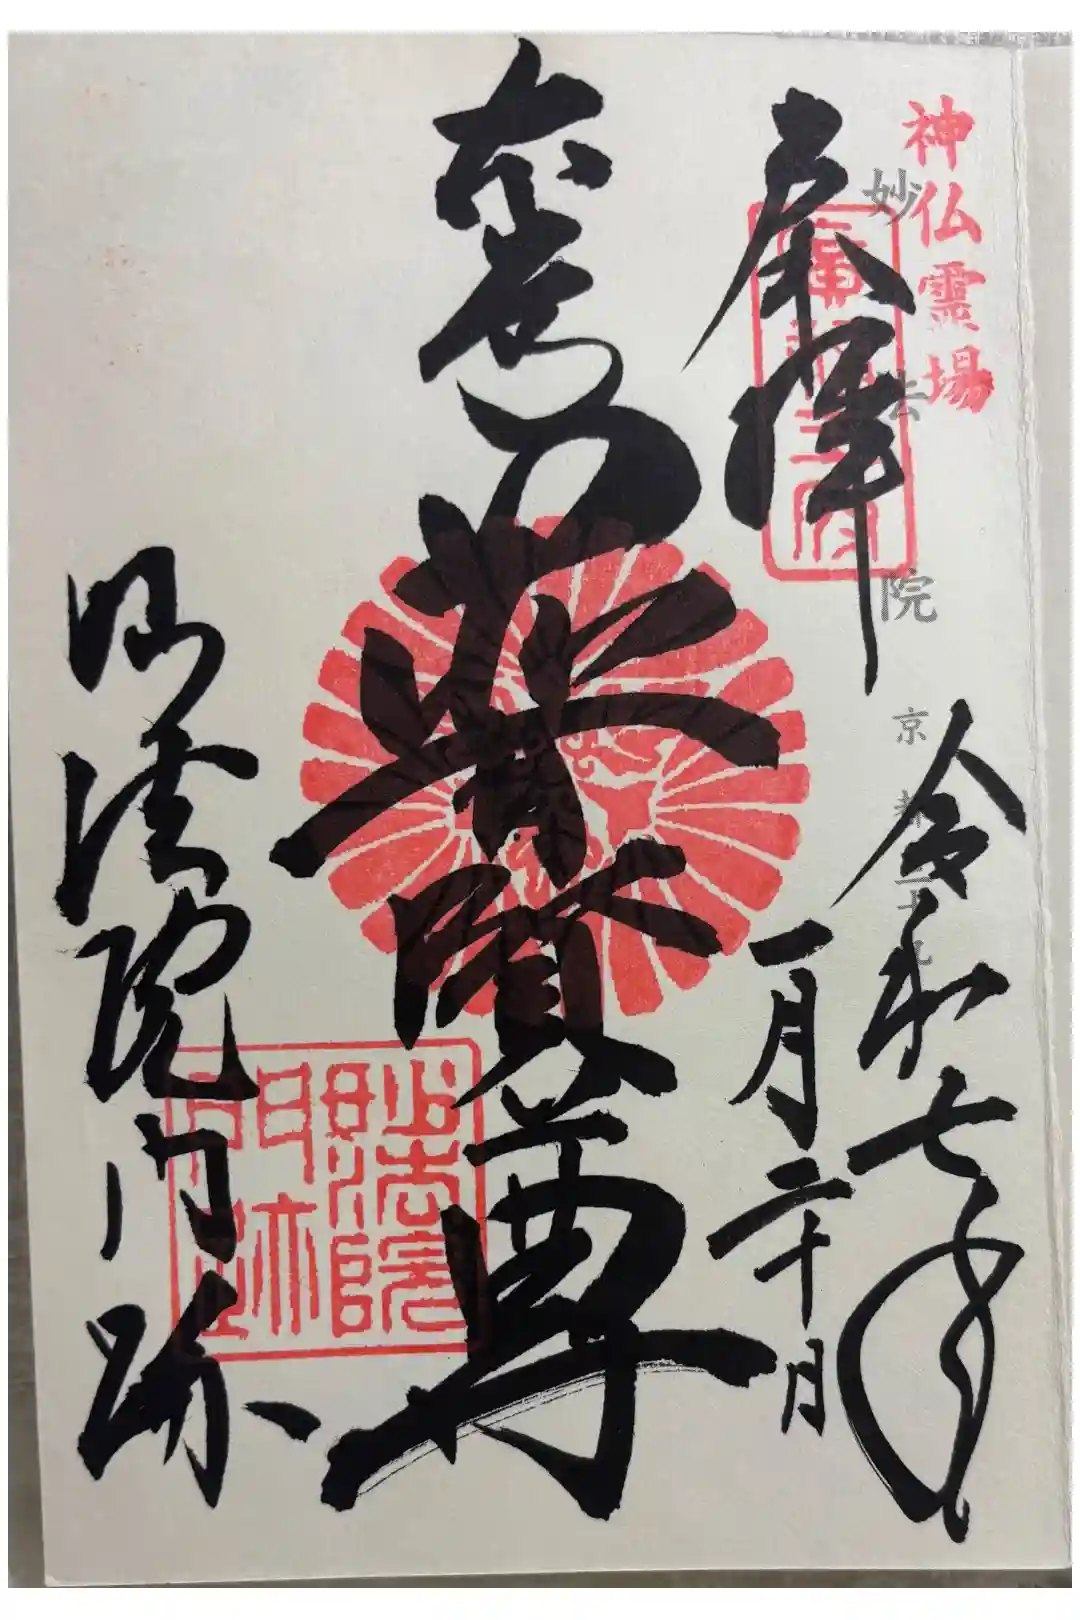 神仏霊場
妙法院
京都
奉拝
令和七年
一月二十日
普賢尊
妙法院門跡
妙法院
門跡